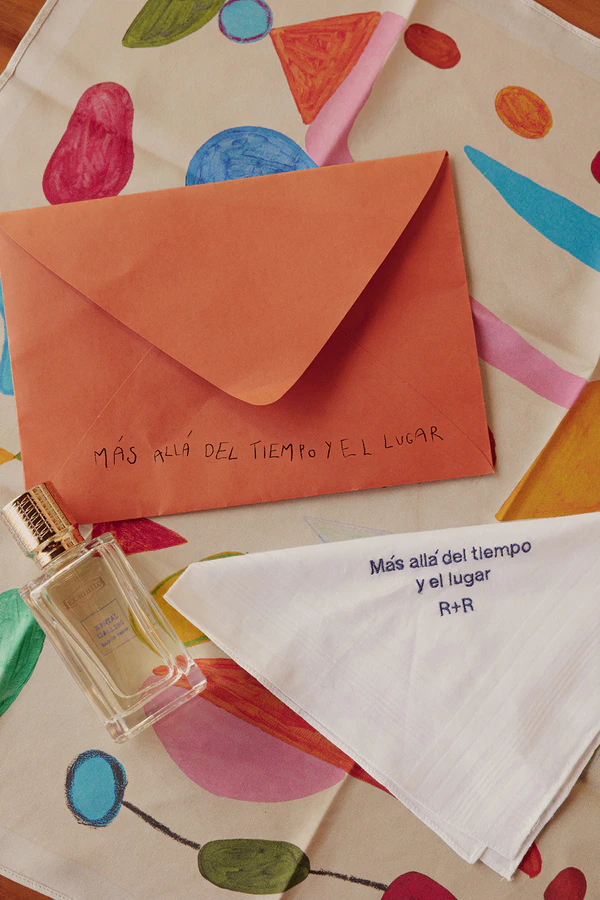 MÁS ALLÁ DEL TIEMPO Y EL LUGAR
Más allá del tiempo
y el lugar
R+R